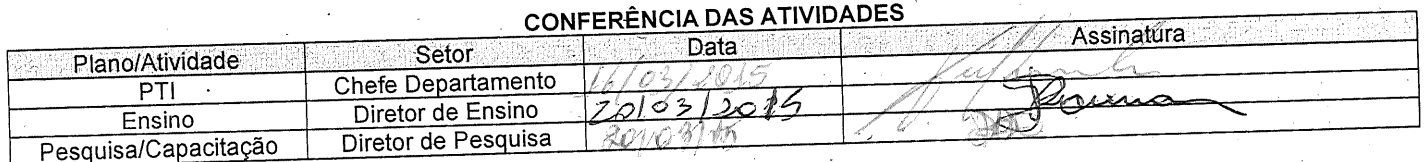 CONFERÊNCIA DAS ATIVIDADES
Plano/Atividade Setor Data Assinatura
PTI Chefe Departamento 16/03/2015
Ensino Diretor de Ensino 20/03/2015
Pesquisa/Capacitação Diretor de Pesquisa